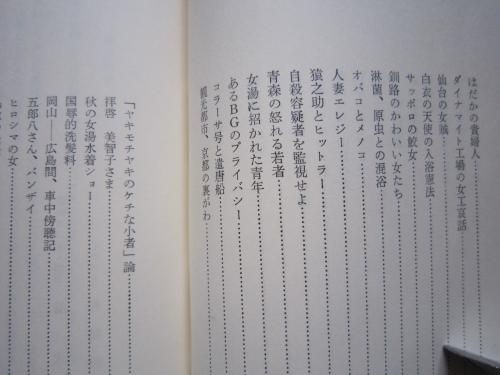 はだかの貴婦人
ダイナマイト工場の女工哀話
仙台の女賊
白衣の天使の入浴憲法
サッポロの鮫女
釧路のかわいい女たち
淋菌、原虫との混浴
オバコとメノコ
人妻エレジー
猿之助とヒットラー
自殺容疑者を監視せよ
青森の怒れる若者
女湯に招かれた青年
あるBGのプライバシー
コラーサ号と遣唐船
観光都市、京都の裏がわ
「ヤキモチヤキのケチな小者」論
拝啓 美智子さま
秋の女湯水着ショー
国辱的洗髪料
岡山――広島間、車中傍聴記
五郎八さん、バンザイ
ヒロシマの女